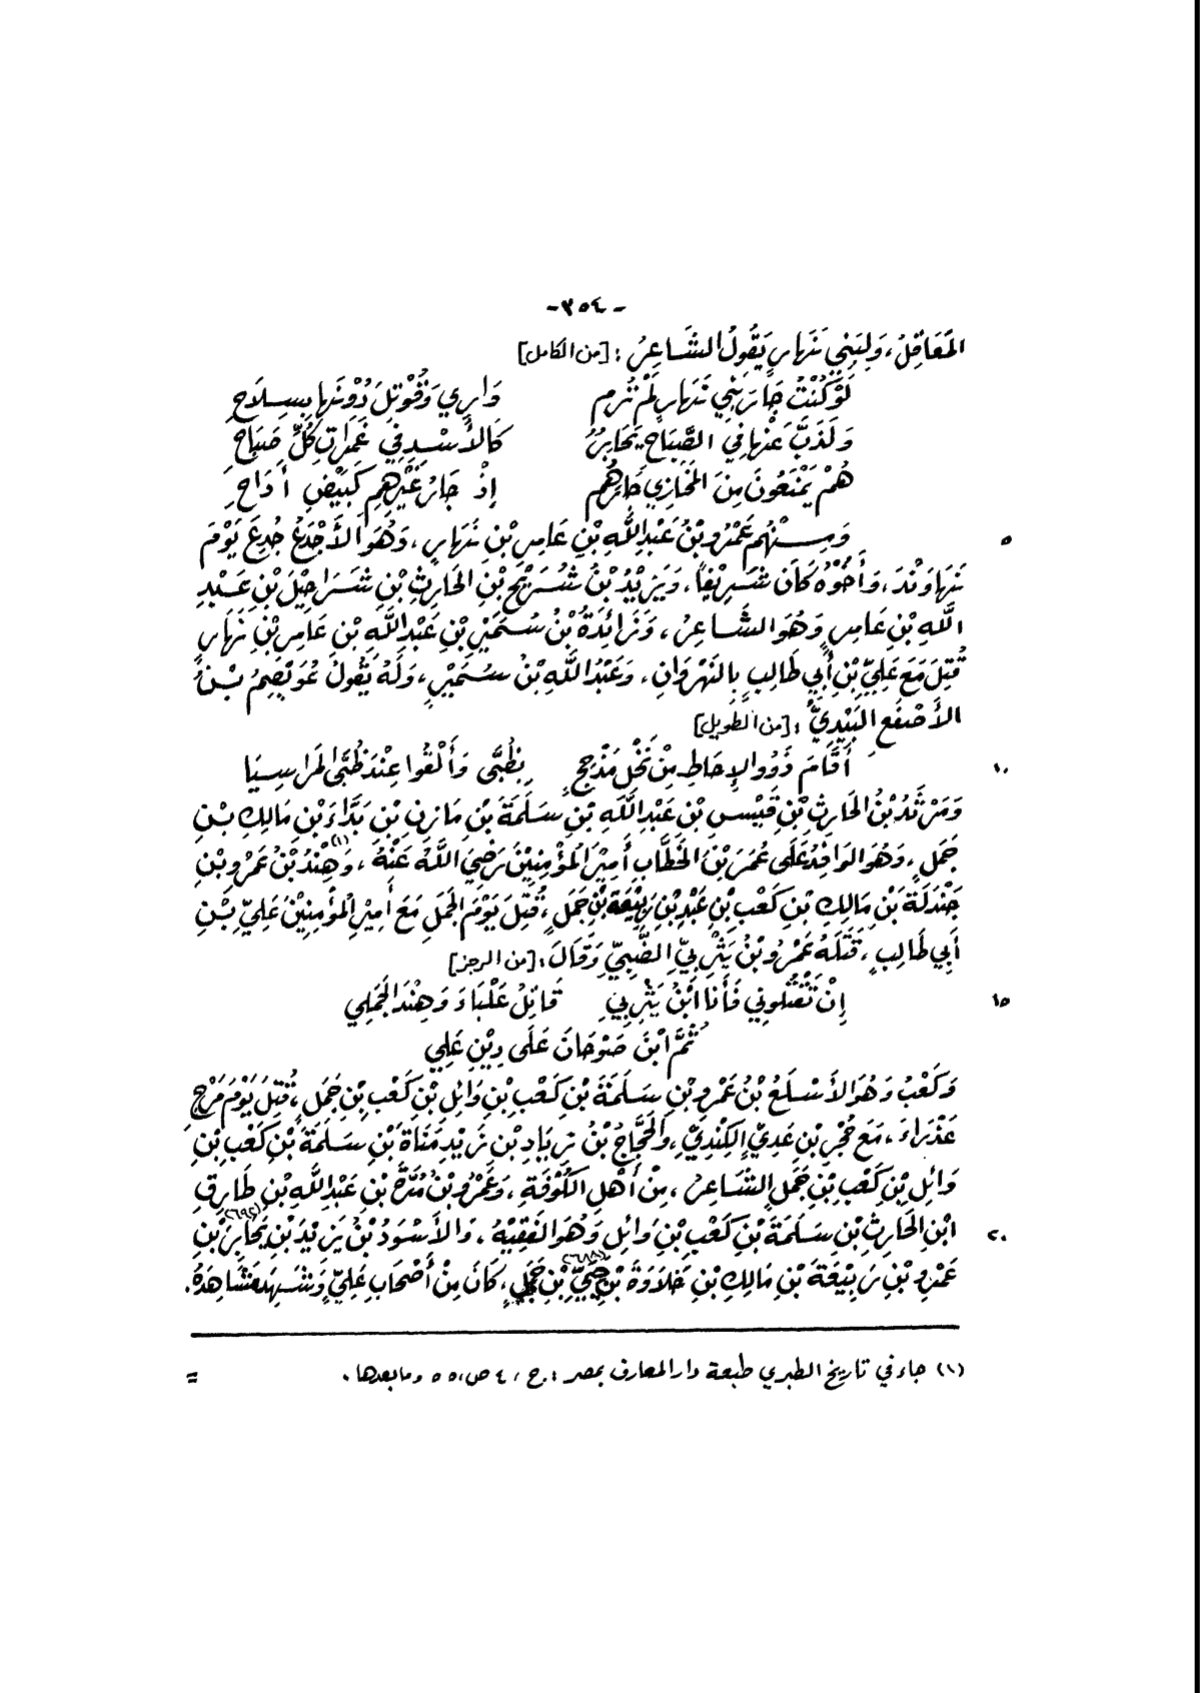 -٣٥٤-
المَعَاقِلُ، وَلِبَنِي نَهَارٍ يَقُولُ الشَّاعِرُ: [من الكامل]
لَوْ كُنْتُ جَارَ بَنِي نَهَارٍ لَمْ تُرَمِ دَارِي وَقُوتِلَ دُوْنَهَا بِسِلَاحِ
وَلَذَبَّ عَنْهَا فِي الصَّبَاحِ يَحَابِرٌ كَالأُسْدِ فِي غَمَرَاتِ كُلِّ صَبَاحِ
هُمْ يَمْنَعُونَ مِنَ المَخَازِي جَارَهُم إِذْ جَارُ غَيْرِهِمِ كَبَيْضِ أَدَاحِ
٥ وَمِنْهُم عَمْرُو بْنُ عَبْدِ اللَّهِ بْنِ عَامِرِ بْنِ نَهَارٍ، وَهُوَ الأَجْدَعُ جُدِعَ يَوْمَ
نَهَاوَنْدَ، وَأَخُوْهُ كَانَ شَرِيْفاً، وَيَزِيْدُ بْنُ شُرَيْحِ بْنِ الحَارِثِ بْنِ شَرَاحِيْلَ بْنِ عَبْدِ
اللَّهِ بْنِ عَامِرٍ وَهُوَ الشَّاعِرُ، وَزَائِدَةُ بْنُ سُمَيْرِ بْنِ عَبْدِ اللَّهِ بْنِ عَامِرِ بْنِ نَهَارٍ
قُتِلَ مَعَ عَلِيِّ بْنِ أَبِي طَالِبٍ بِالنَّهْرَوَانِ، وَعَبْدُ اللَّهِ بْنُ سُمَيْرٍ، وَلَهُ يَقُولُ عُوَيْصِمُ بْنُ
الأَصْقَعِ البَيْدِيُّ: [من الطويل]
١٠ أَقَامَ ذَوُو الإِحَاطِ مِنْ نَخْلِ مَذْحِجٍ بِظُبَّى وَأَلْقُوا عِنْدَ ظُبَّى المَرَاسِيَا
وَمَرْثَدُ بْنُ الحَارِثِ بْنِ قَيْسِ بْنِ عَبْدِ اللَّهِ بْنِ سَلَمَةَ بْنِ مَازِنِ بْنِ بَدَّاءَ بْنِ مَالِكِ بْنِ
جَمَلٍ، وَهُوَ الوَافِدُ عَلَى عُمَرَ بْنِ الخَطَّابِ أَمِيْرِ المُؤْمِنِيْنَ رَضِيَ اللَّهُ عَنْهُ، وَهِنْدُ(١) بْنُ عَمْرِو بْنِ
جَنْدَلَةَ بْنِ مَالِكِ بْنِ كَعْبِ بْنِ عَبْدِ بْنِ رَبِيْعَةَ بْنِ جَمَلٍ، قُتِلَ يَوْمَ الجَمَلِ مَعَ أَمِيْرِ المُؤْمِنِيْنَ عَلِيِّ بْنِ
أَبِي طَالِبٍ، قَتَلَهُ عَمْرُو بْنُ يَثْرِبِيِّ الضَّبِّيُّ وَقَالَ: [من الرجز]
١٥ إِنْ تَقْتُلُونِي فَأَنَا ابْنُ يَثْرِبِي قَاتِلُ عَلْبَاءَ وَهِنْدَ الجَمَلِي
ثُمَّ ابْنَ صَوْحَانَ عَلَى دِيْنِ عَلِي
وَكَعْبُ وَهُوَ الأَسْلَعُ بْنُ عَمْرِو بْنِ سَلَمَةَ بْنِ كَعْبِ بْنِ وَائِلِ بْنِ كَعْبِ بْنِ جَمَلٍ، قُتِلَ يَوْمَ مَرْجِ
عَذْرَاءَ، مَعَ حُجْرِ بْنِ عَدِيٍّ الكِنْدِيِّ، وَالحَجَّاجُ بْنُ زِيَادِ بْنِ زَيْدِ مَنَاةَ بْنِ سَلَمَةَ بْنِ كَعْبِ بْنِ
وَائِلِ بْنِ كَعْبِ بْنِ جَمَلٍ الشَّاعِرُ، مِنْ أَهْلِ الكُوْفَةِ، وَعَمْرُو بْنُ مُرَّةَ بْنِ عَبْدِ اللَّهِ بْنِ طَارِقِ
٢٠ ابْنِ الحَارِثِ بْنِ سَلَمَةَ بْنِ كَعْبِ بْنِ وَائِلٍ وَهُوَ الفَقِيْهُ، وَالأَسْوَدُ بْنُ يَزِيْدَ بْنِ يَحَابِرَ بْنِ
عَمْرِو بْنِ رَبِيْعَةَ بْنِ مَالِكِ بْنِ خَلَاوَةَ بْنِ حِيَيِّ بْنِ جَمَلٍ، كَانَ مِنْ أَصْحَابِ عَلِيٍّ وَشَهِدَ مَشَاهِدَهُ.
(١) جاء في تاريخ الطبري طبعة دار المعارف بمصر: ج، ٤ ص، ٥٥ وما بعدها. =